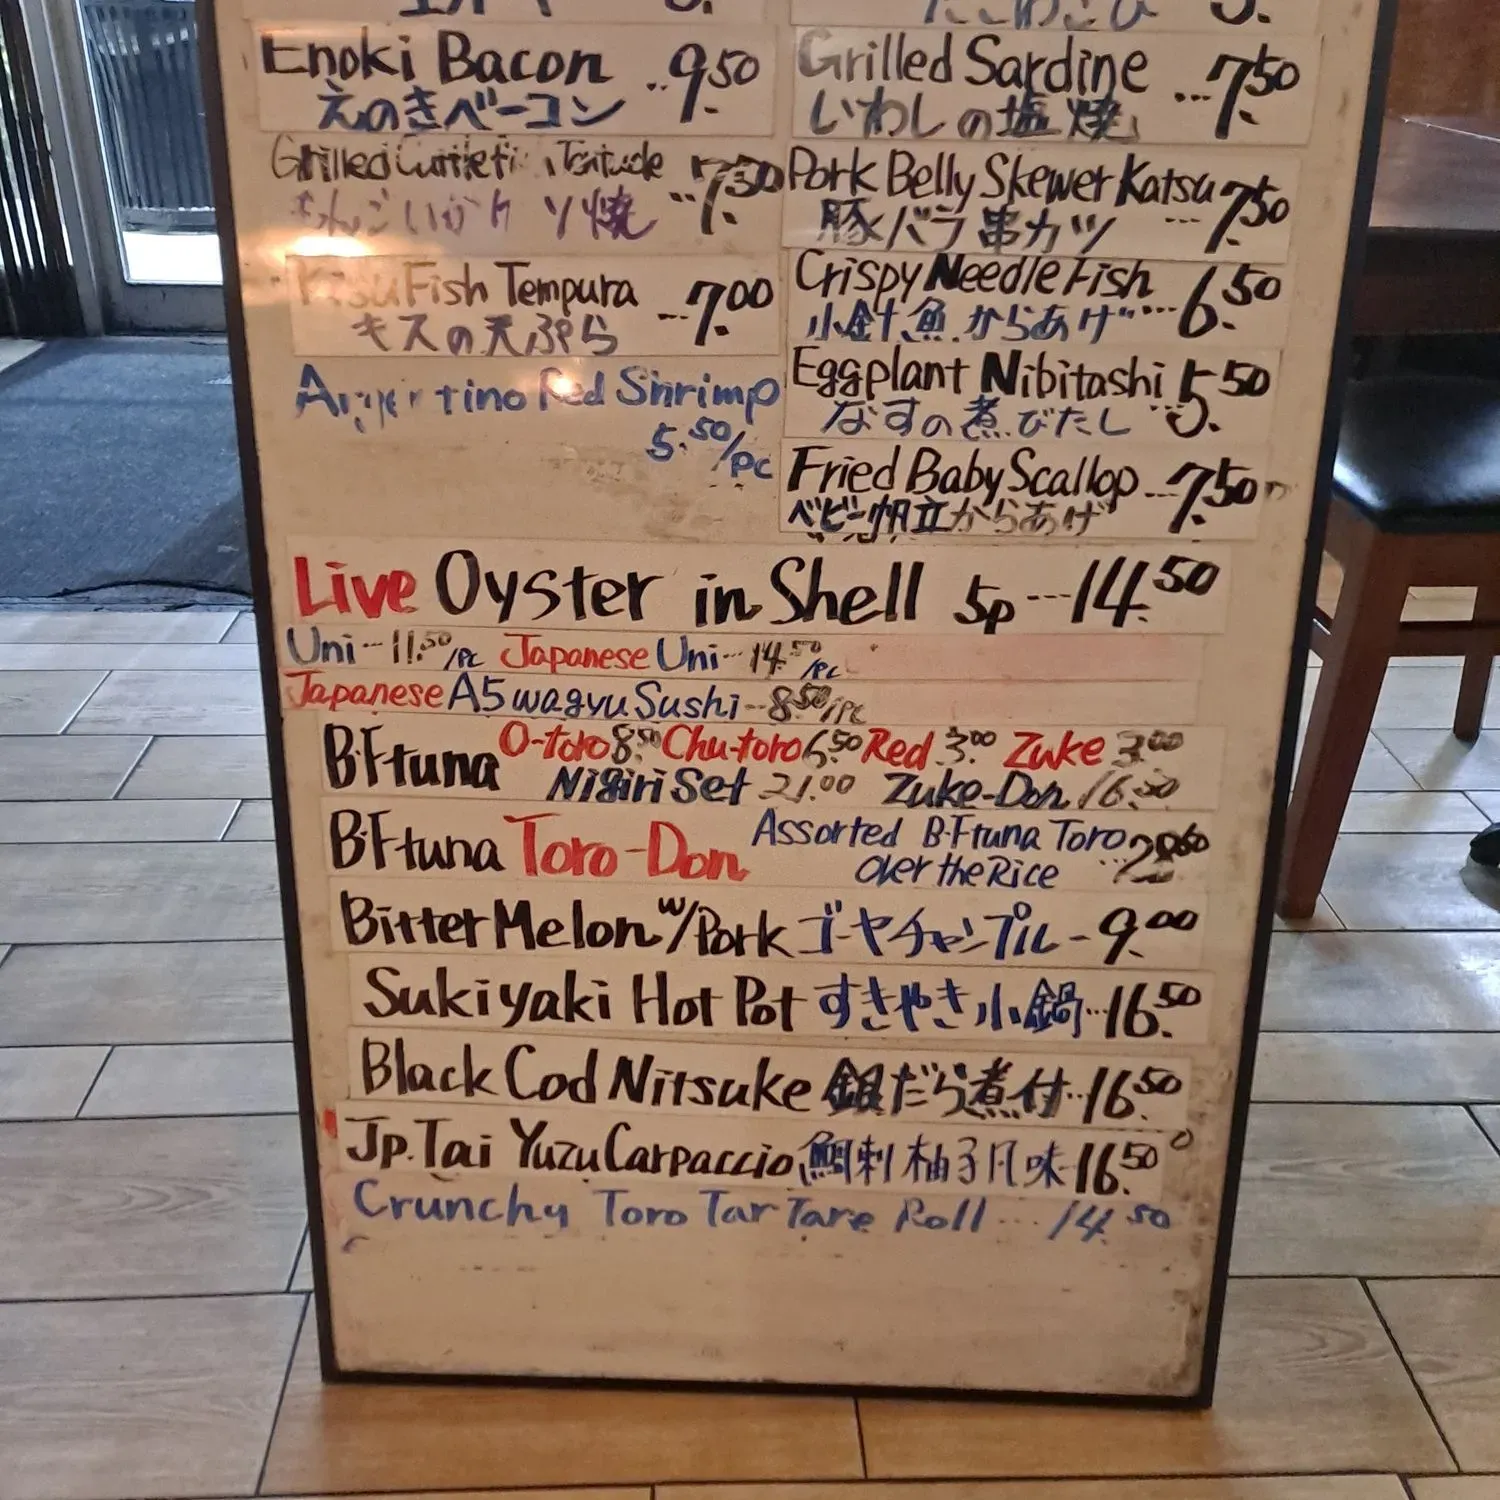 Enoki Bacon ..9.50
えのきベーコン
Grilled Sardine ...7.50
いわしの塩焼
Grilled ...7.50
焼
Pork Belly Skewer Katsu ...7.50
豚バラ串カツ
Kisu Fish Tempura ...7.00
キスの天ぷら
Crispy Needle Fish ...6.50
小針魚からあげ
Red Shrimp
5.50/pc
Eggplant Nibitashi ...5.50
なすの煮びたし
Fried Baby Scallop ...7.50
ベビー帆立からあげ
Live Oyster in Shell 5p ---14.50
Uni --11.50/pc Japanese Uni --14.50/pc
Japanese A5 wagyu Sushi --8.50/pc
B.F tuna O-toro 8.50 Chu-toro 6.50 Red 3.00 Zuke 3.00
Nigiri Set 21.00 Zuke-Don 16.50
B.F tuna Toro-Don Assorted B.F tuna Toro
over the Rice
Bitter Melon w/Pork ゴーヤチャンプル - 9.00
Sukiyaki Hot Pot すきやき小鍋...16.50
Black Cod Nitsuke 銀だら煮付...16.50
Jp. Tai Yuzu Carpaccio 鯛刺柚子風味 16.50
Crunchy Toro Tar Tare Roll ... 14.50